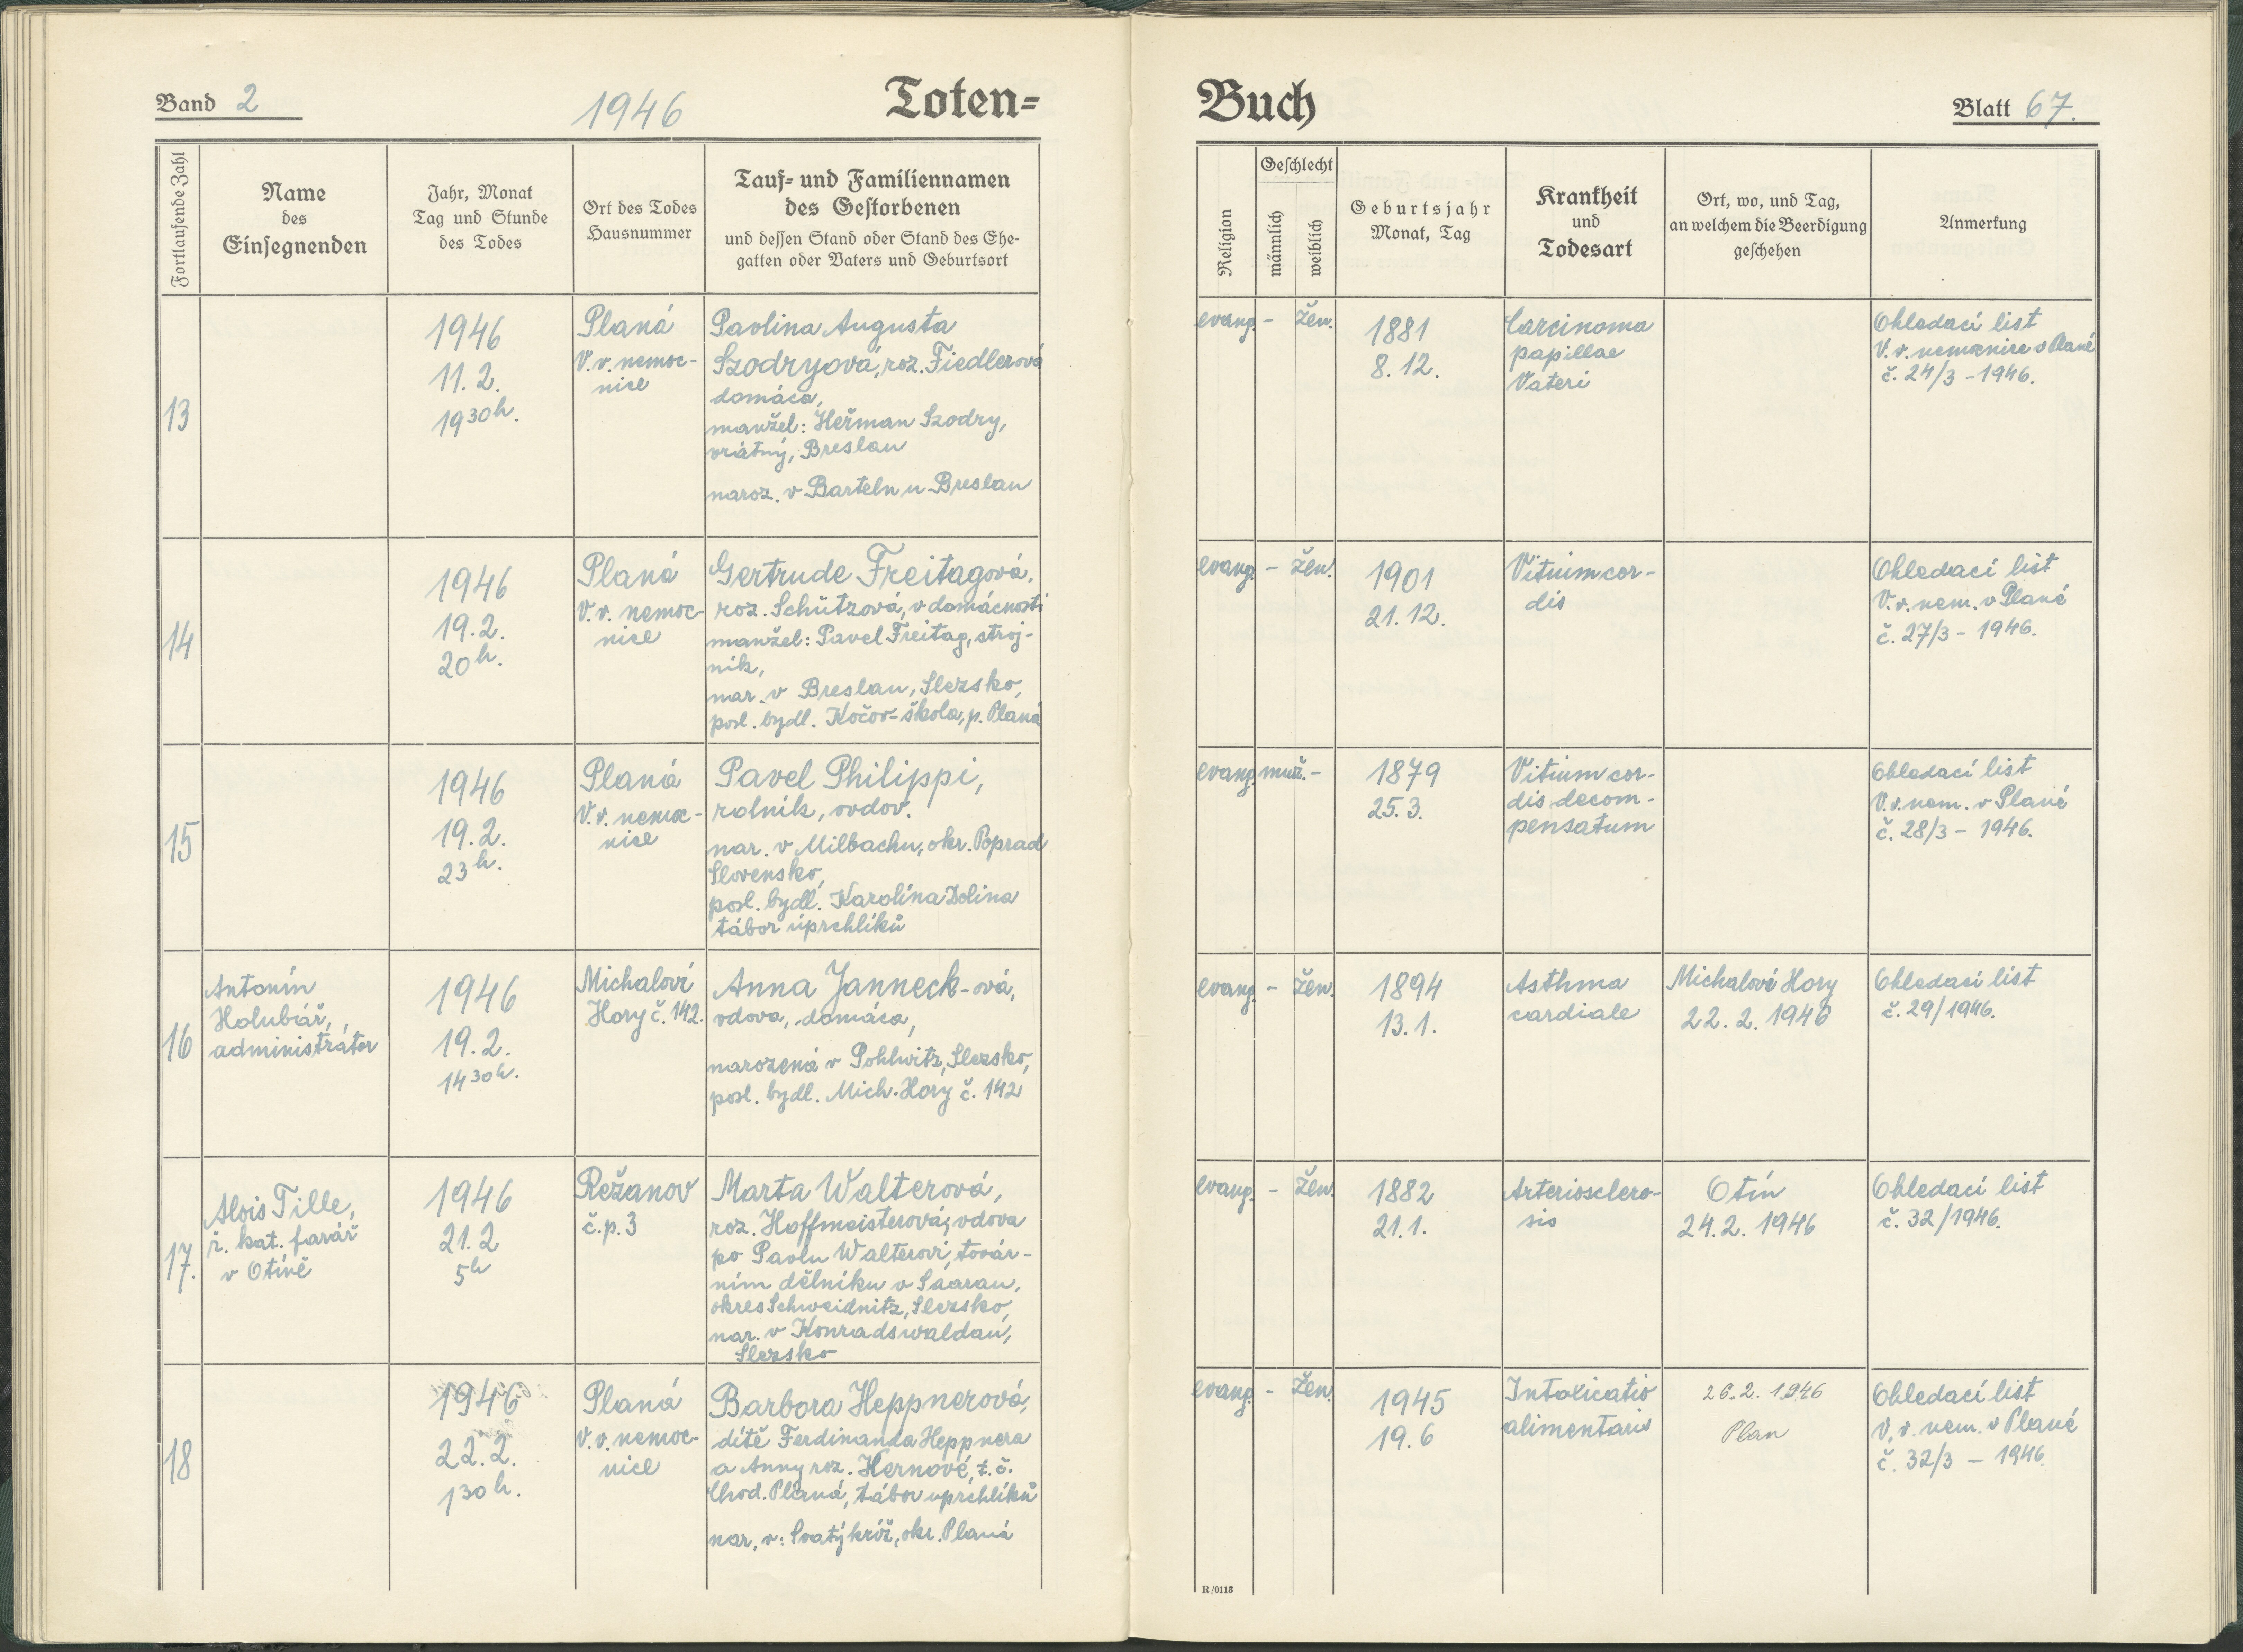 Band 2
1946
Toten=
Buch
Blatt 67.
Fortlaufende Zahl
Name
des
Einsegnenden
Jahr, Monat
Tag und Stunde
des Todes
Ort des Todes
Hausnummer
Tauf= und Familiennamen
des Gestorbenen
und dessen Stand oder Stand des Ehe-
gatten oder Vaters und Geburtsort
Religion
Geschlecht
männlich
weiblich
Geburtsjahr
Monat, Tag
Krankheit
und
Todesart
Ort, wo, und Tag,
an welchem die Beerdigung
geschehen
Anmerkung
13
1946
11. 2.
19 30 h.
Planá
V. v. nemoc-
nice
Pavlina Augusta
Szodryová, roz. Fiedlerová
domáca,
manžel: Heřman Szodry,
vrátný, Breslau
naroz. v Barteln u Breslau
evang. - žen.
1881
8. 12.
Carcinoma
papillae
Vateri
Ohledací list
V. v. nemocnice v Plané
č. 24/3 - 1946.
14
1946
19. 2.
20 h.
Planá
V. v. nemoc-
nice
Gertrude Freitagová,
roz. Schützová, v domácnosti
manžel: Pavel Freitag, stroj-
ník,
nar. v Breslau, Slezsko,
posl. bydl. Kočov-škola, p. Planá
evang. - žen.
1901
21. 12.
Vitium cor-
dis
Ohledací list
V. v. nem. v Plané
č. 27/3 - 1946.
15
1946
19. 2.
23 h.
Planá
V. v. nemoc-
nice
Pavel Philippi,
rolník, ovdov.
nar. v Milbachu, okr. Poprad
Slovensko,
posl. bydl. Karolina Dolina
tábor uprchlíků
evang. muž. -
1879
25. 3.
Vitium cor-
dis decom-
pensatum
Ohledací list
V. v. nem. v Plané
č. 28/3 - 1946.
16
Antonín
Holubář,
administrátor
1946
19. 2.
14 30 h.
Michalovi
Hory č. 142.
Anna Janneck-ová,
vdova, domáca,
narozená v Pohlwitz, Slezsko,
posl. bydl. Mich. Hory č. 142
evang. - žen.
1894
13. 1.
Asthma
cardiale
Michalové Hory
22. 2. 1946
Ohledací list
č. 29/1946.
17.
Alois Tille,
ř. kat. farář
v Otíně
1946
21. 2
5 h
Režanov
č. p. 3
Marta Walterová,
roz. Hoffmeisterová, vdova
po Pavlu Walterovi, továr-
ním dělníku v Saarau,
okres Schweidnitz, Slezsko,
nar. v Konradswaldau,
Slezsko
evang. - žen.
1882
21. 1.
Arterioscler-
sis
Otín
24. 2. 1946
Ohledací list
č. 32/1946.
18
1946
22. 2.
1 30 h.
Planá
V. v. nemoc-
nice
Barbora Heppnerová,
dítě Ferdinanda Heppnera
a Anny roz. Hernové, t. č.
Chod. Planá, tábor uprchlíků
nar. v: Svatý kříž, okr. Planá
evang. - žen.
1945
19. 6
Intoxicatio
alimentaris
26. 2. 1946
Plan
Ohledací list
V. v. nem. v Plané
č. 32/3 - 1946.
R/0113